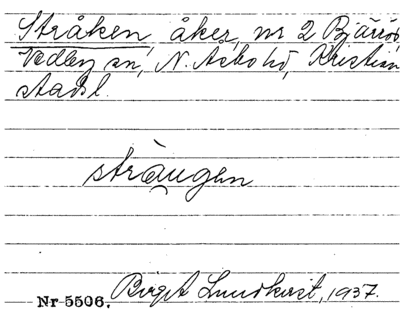 Stråken, åker, nr 2 Bjäröd,
Vedby sn, N. Åsbo hd, Kristian
stads l.
strängen
Nr 5506. Birgit Lundkvist, 1937.